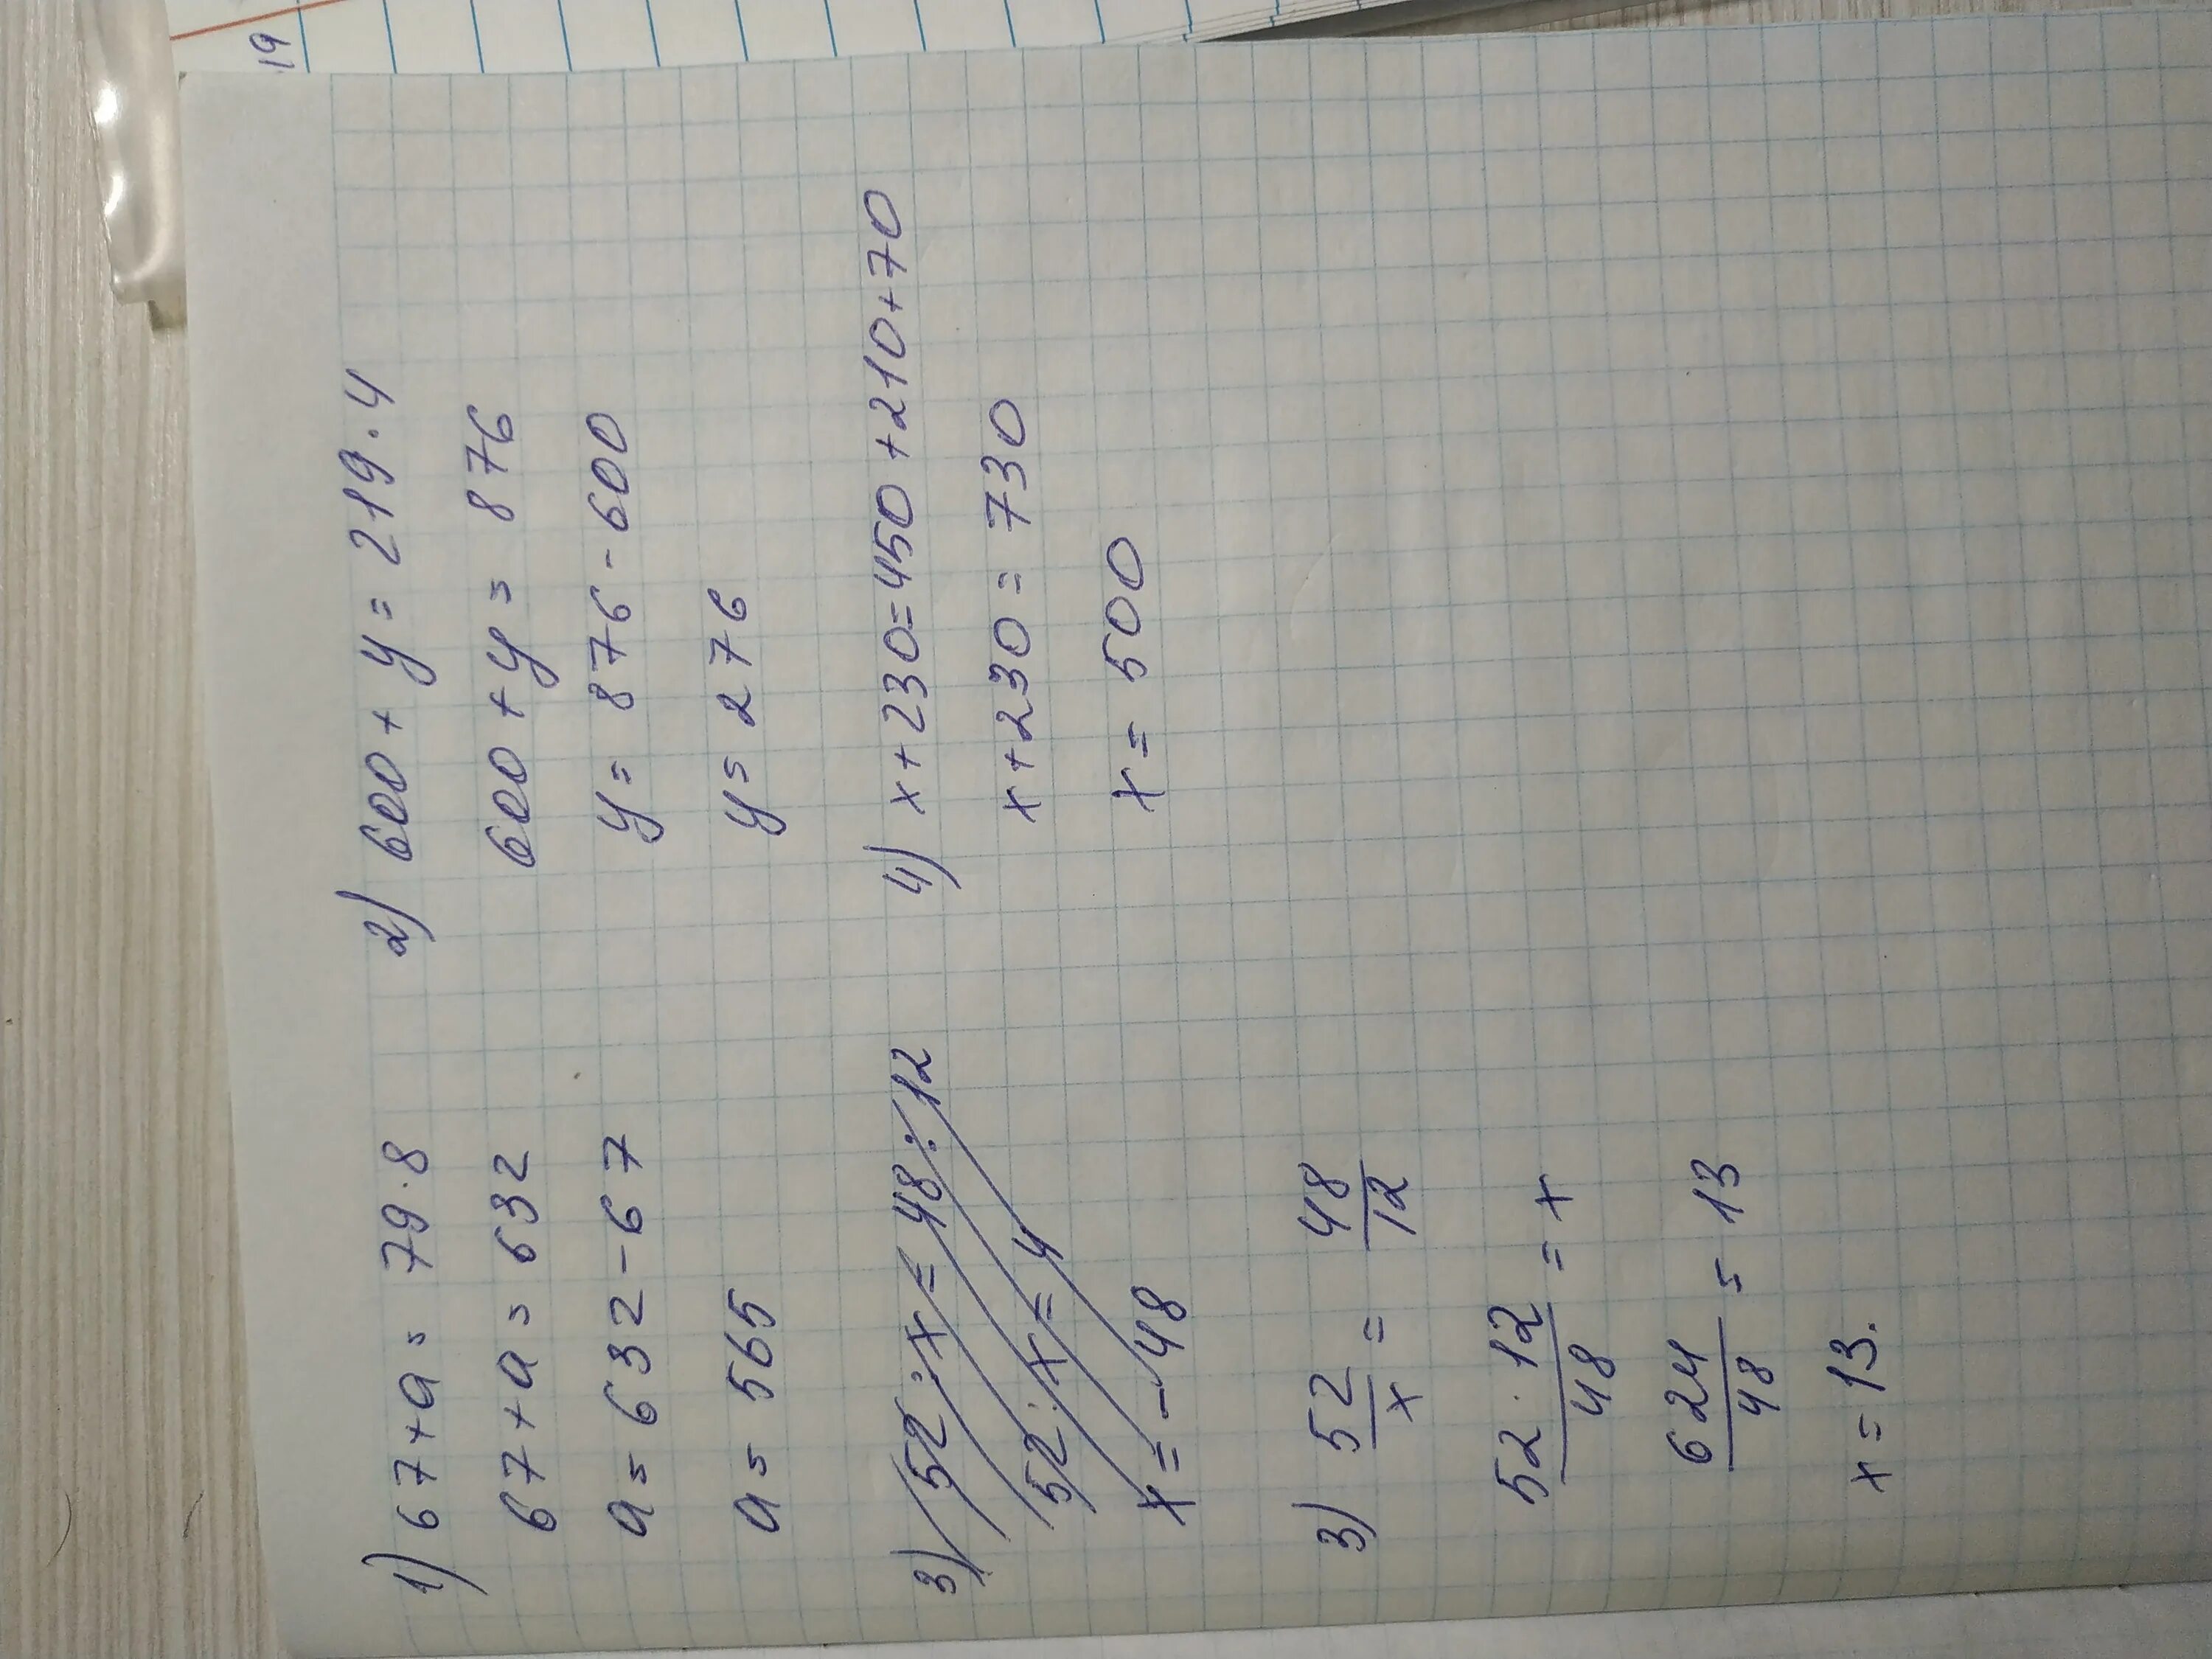 19
1) 67+a= 79·8
67+a=632
a=632-67
a= 565
2) 600+y=219·4
600+y= 876
y= 876-600
y= 276
3) 52:x=48:12
52:x=4
x=-48
4) x+230=450+210+70
x+230=730
x= 500
3) 52/x = 48/12
52·12/48 = x
624/48 = 13
x=13.